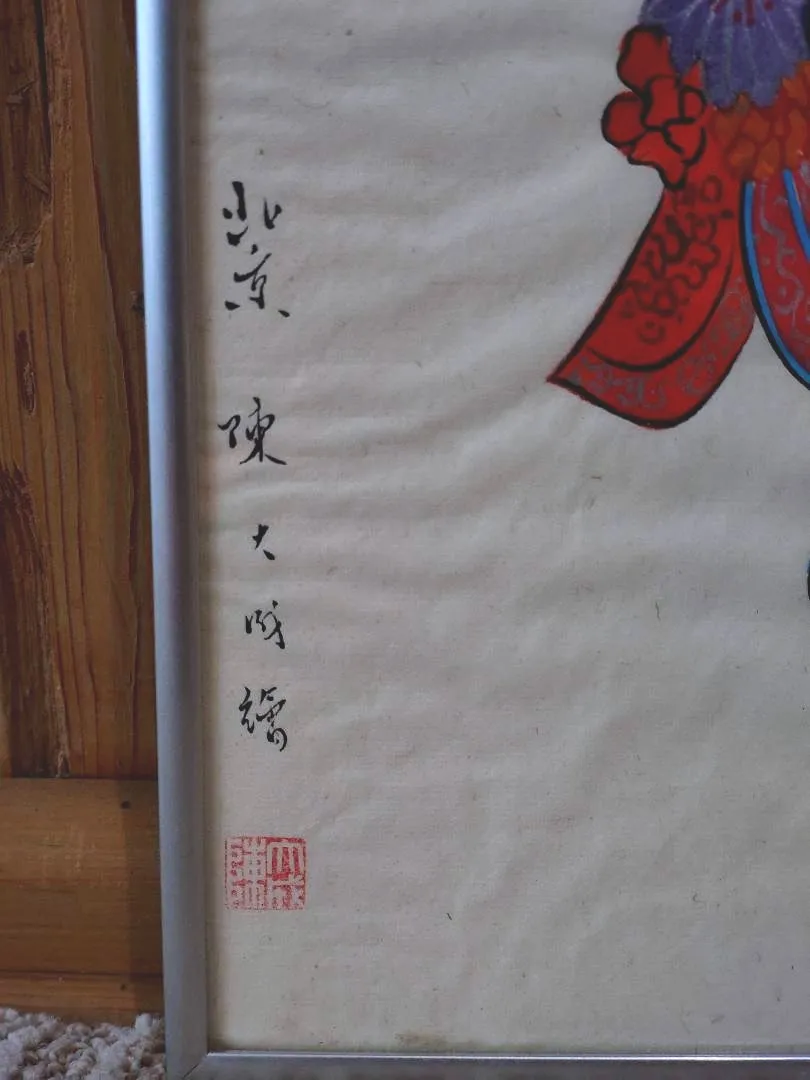 北京 陳大成繪